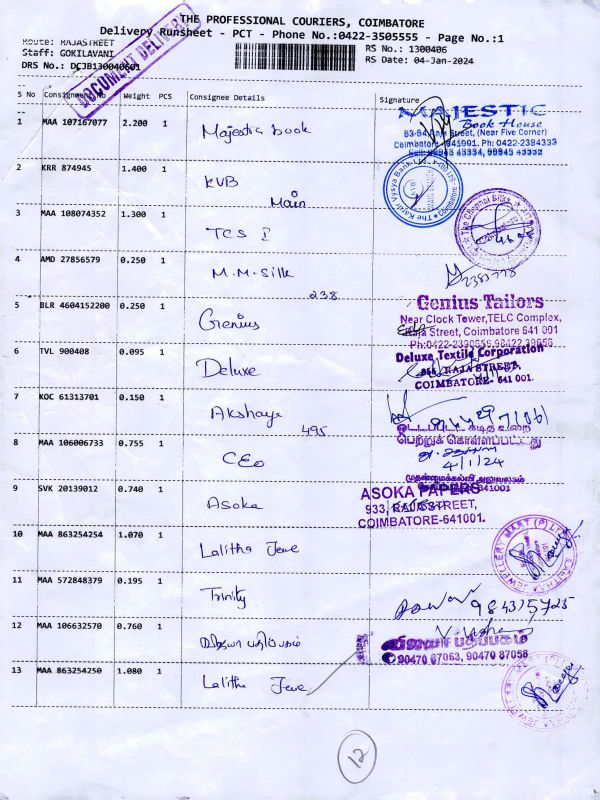 THE PROFESSIONAL COURIERS, COIMBATORE
Delivery Runsheet - PCT - Phone No.:0422-3505555 - Page No.:1
Route: RAJASTREET
Staff: GOKILAVANI
DRS No.: DCJB130040601
RS No.: 1300406
RS Date: 04-Jan-2024
DOCUMENT DELIVERY
S No Consignment No Weight PCS Consignee Details Signature
1 MAA 107167077 2.200 1 Majestia book
MAJESTIC
Book House
Raja Street, (Near Five Corner)
Coimbatore -641001. Ph: 0422-2384333
2 KRR 874945 1.400 1 KVB
Main
The Karur Vysya Bank Ltd
3 MAA 108074352 1.300 1 TCS I
The Chennai Silks
4 AMD 27856579 0.250 1 M.M. Silk
238
5 BLR 4604152200 0.250 1 Genius
Genius Tailors
Near Clock Tower, TELC Complex,
Raja Street, Coimbatore 641 001
6 TVL 900408 0.095 1 Deluxe
Deluxe Textile Corporation
RAJA STREET,
COIMBATORE- 641 001.
7 KOC 61313701 0.150 1 Akshaya
495
8 MAA 106006733 0.755 1 CEO
பெற்றுக் கொள்ளப்பட்டது
4/1/24
முதன்மைக்கல்வி அலுவலகம்
9 SVK 20139012 0.740 1 Asoka
ASOKA PAPERS
933, RAJA STREET,
COIMBATORE-641001.
10 MAA 863254254 1.070 1 Lalitha Jewe
LALITHA JEWELLERY MART (P) LTD
11 MAA 572848379 0.195 1 Trinity
12 MAA 106632570 0.760 1 விஜயா பதிப்பகம்
விஜயா பதிப்பகம்
90470 87053, 90470 87058
13 MAA 863254250 1.080 1 Lalitha Jewe
12